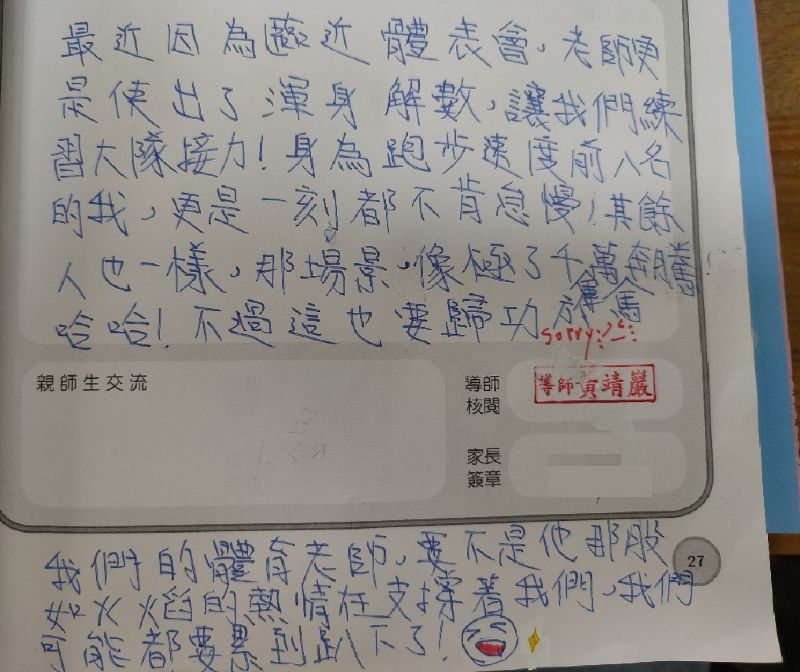 最近因為逼近體表會，老師更
是使出了渾身解數，讓我們練
習大隊接力！身為跑步速度前八名
的我，更是一刻都不肯怠慢！其餘
人也一樣，那場景，像極了千萬奔騰！
萬馬
哈哈！不過這也要歸功於
sorry
親師生交流
導師
核閱
導師 黃靖巖
家長
簽章
27
我們的體育老師，要不是他那股
如火焰的熱情在支撐著我們，我們
可能都要累到趴下了！